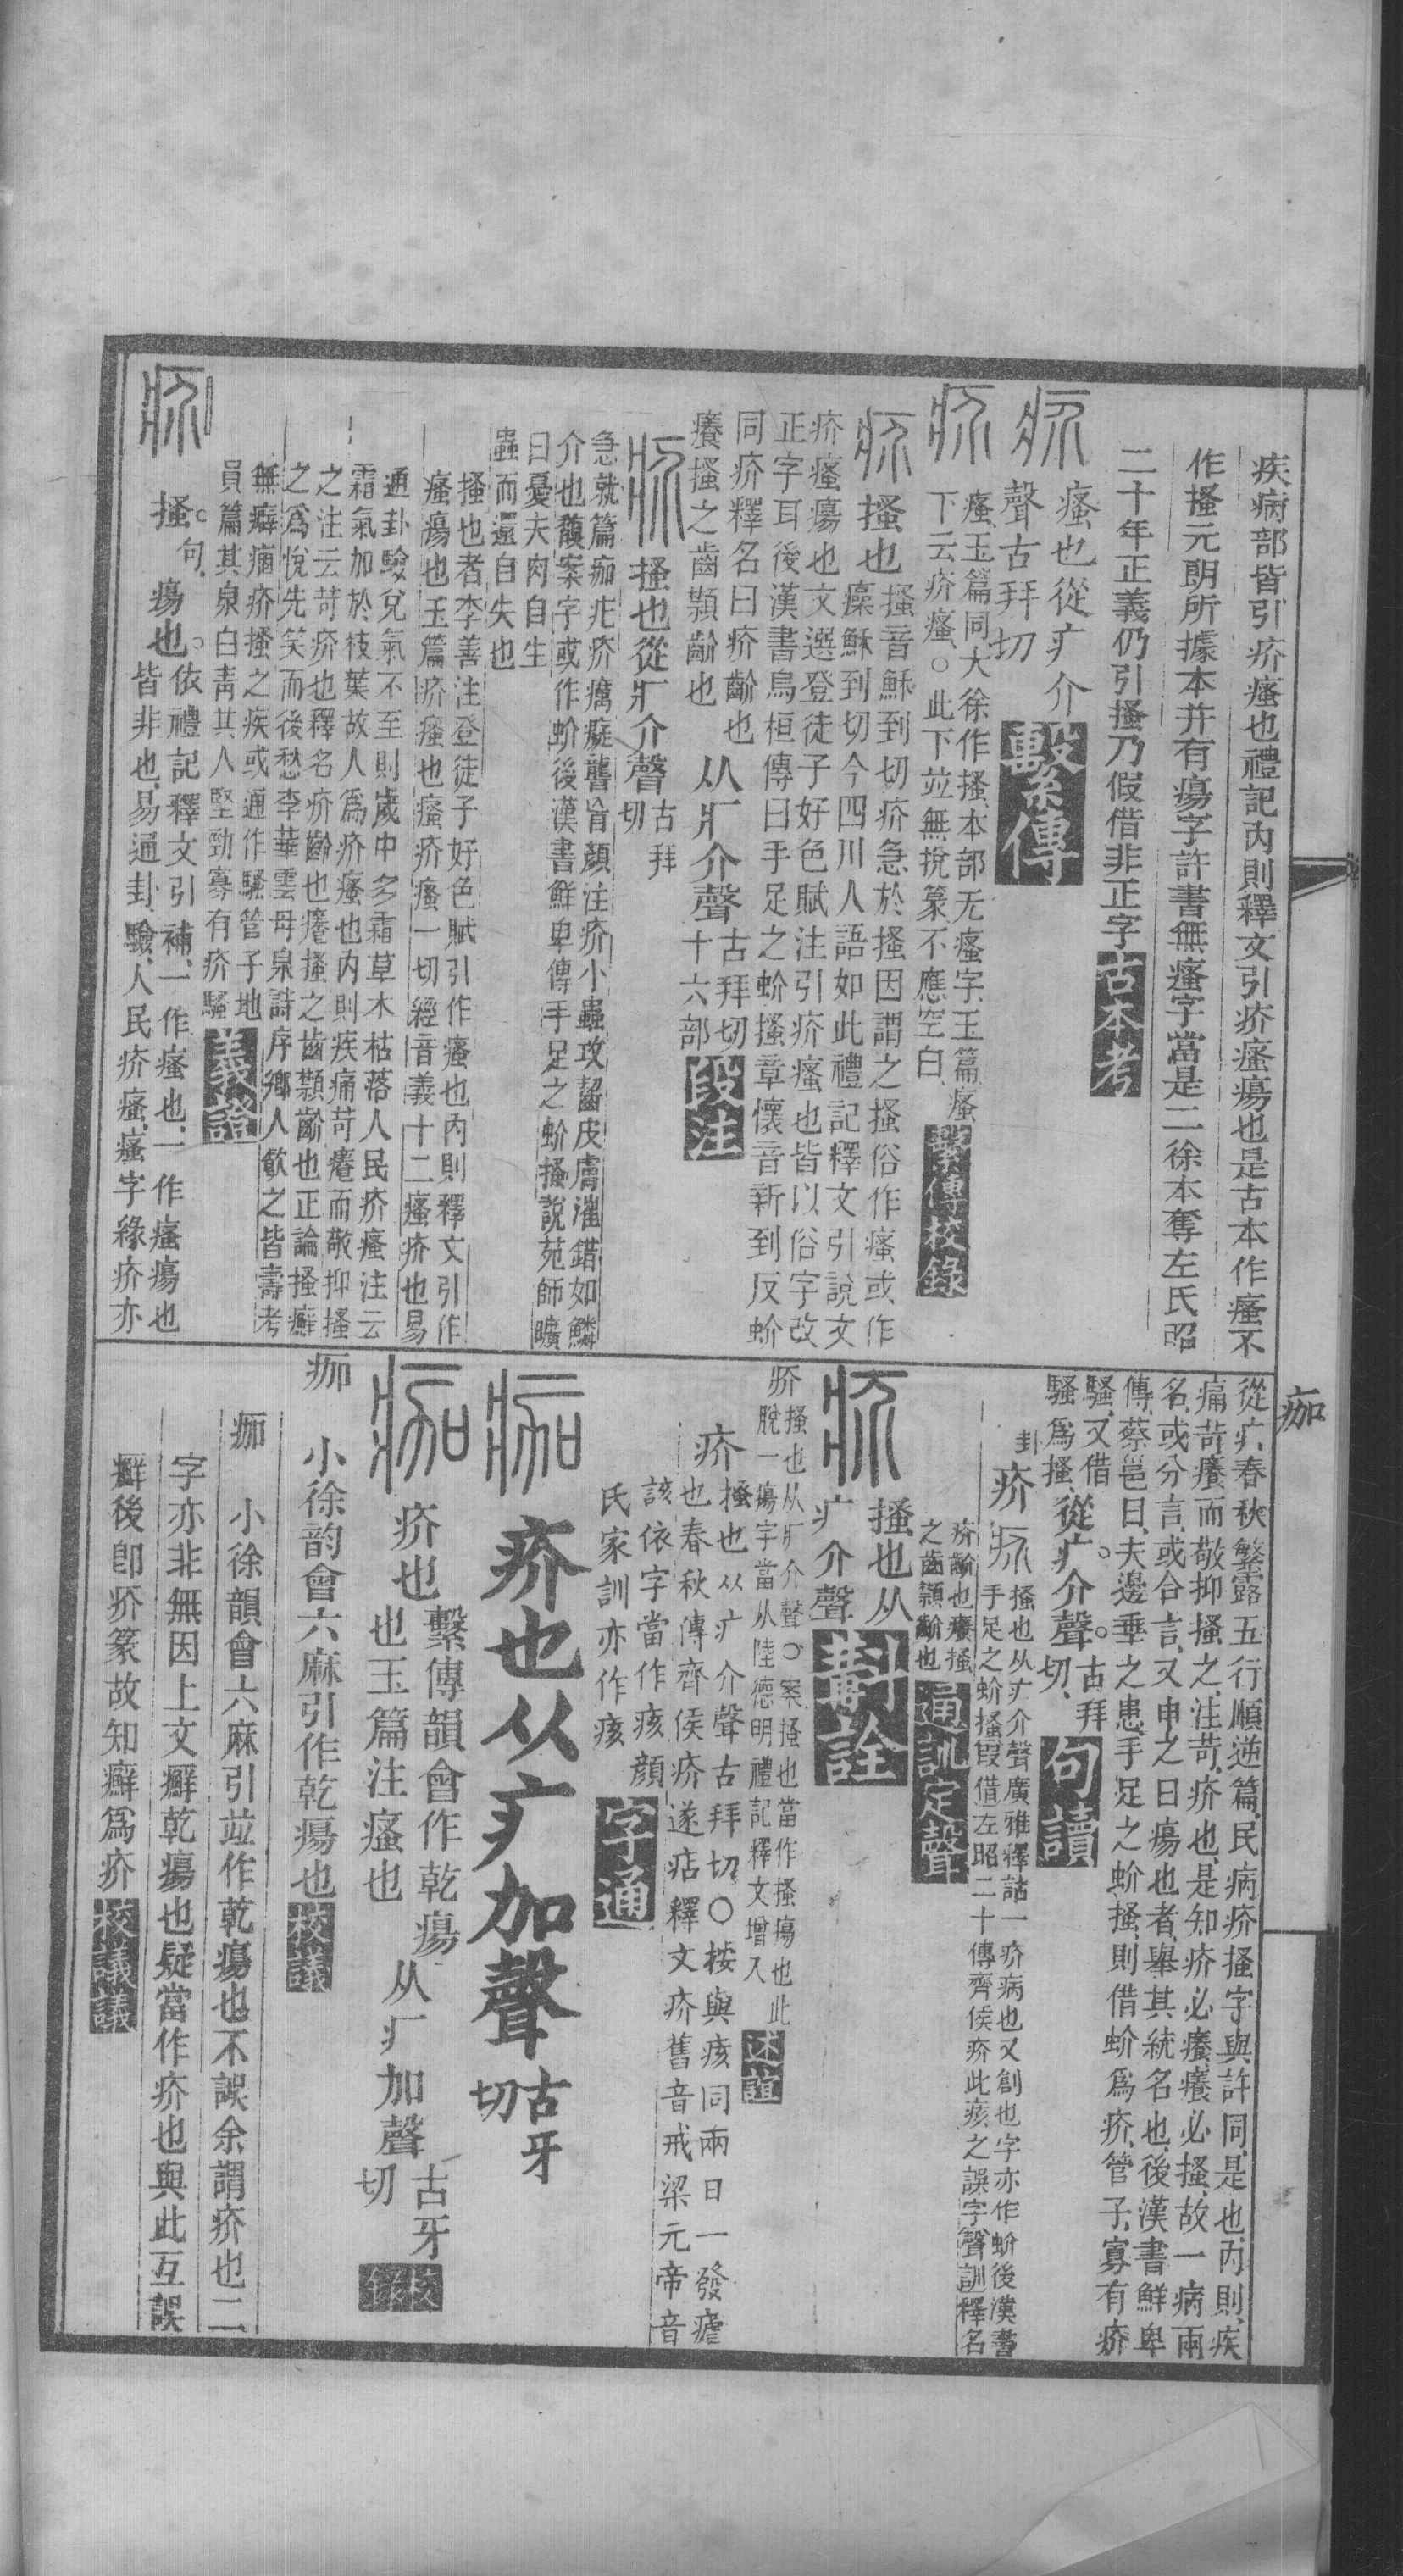 疾病部皆引疥瘙也禮記内則釋文引疥瘙瘍也是古本作瘙不
作搔元朗所據本并有瘍字許書無瘙字當是二徐本奪左氏昭
二十年正義仍引搔乃假借非正字古本考
瘙也從疒介
聲古拜切繫傳
瘙玉篇同大徐作搔本部无瘙字玉篇瘙
下云疥瘙○此下竝無挩篆不應空白繫傳校錄
搔也
搔音穌到切疥急於搔因謂之搔俗作瘙或作
瘼穌到切今四川人語如此禮記釋文引說文
疥瘙瘍也文選登徒子好色賦注引疥瘙也皆以俗字改
正字耳後漢書烏桓傳曰手足之蚧搔章懷音新到反蚧
同疥釋名曰疥齘也
癢搔之齒類齘也
从疒介聲古拜切十六部段注
搔也從疒介聲古拜切
急就篇痂疕疥癘癡聾盲顏注疥小蟲攻齧皮膚漼錯如鱗
介也馥案字或作蚧後漢書鮮卑傳手足之蚧搔說苑師曠
曰憂夫肉自生
蟲而還自失也
搔也者李善注登徒子好色賦引作瘙也内則釋文引作
瘙瘍也玉篇疥瘙也瘙疥瘙一切經音義十二瘙疥也易
通卦驗兌氣不至則歲中多霜草木枯落人民疥瘙注云
霜氣加於枝葉故人爲疥瘙也内則疾痛苛癢而敬抑搔
之注云苛疥也釋名疥齘也癢搔之齒類齘也正論搔癬
之爲悅先笑而後愁李華雲母泉詩序鄉人飲之皆壽考
無癖痼疥搔之疾或通作騷管子地
員篇其泉白靑其人堅勁寡有疥騷義證
搔句瘍也依禮記釋文引補一作瘙也一作瘙瘍也
皆非也易通卦驗人民疥瘙瘙字緣疥亦
從疒春秋繁露五行順逆篇民病疥搔字與許同是也内則疾
痛苛癢而敬抑搔之注苛疥也是知疥必癢癢必搔故一病兩
名或分言或合言又申之曰瘍也者舉其統名也後漢書鮮卑
傳蔡邕曰夫邊垂之患手足之蚧搔則借蚧爲疥管子寡有疥
騷又借
騷爲搔從疒介聲古拜切句讀
卦疥搔也从疒介聲廣雅釋詁一疥病也又創也字亦作蚧後漢書
手足之蚧搔叚借左昭二十傳齊侯疥此痎之誤字聲訓釋名
疥齘也癢搔
之齒類齘也通訓定聲
搔也从
疒介聲斠詮
疥搔也从疒介聲○案搔也當作搔瘍也此
脫一瘍字當从陸德明禮記釋文增入述誼
疥搔也从疒介聲古拜切○按與痎同兩日一發瘧
也春秋傳齊侯疥遂痁釋文疥舊音戒梁元帝音
該依字當作痎顏
氏家訓亦作痎字通
疥也从疒加聲古牙切
疥也繫傳韻會作乾瘍
也玉篇注瘙也从疒加聲古牙切
痂
小徐韵會六麻引作乾瘍也校議
痂 小徐韻會六麻引竝作乾瘍也不誤余謂疥也二
字亦非無因上文癬乾瘍也疑當作疥也與此互誤
癬後卽疥篆故知癬爲疥校議議
痂